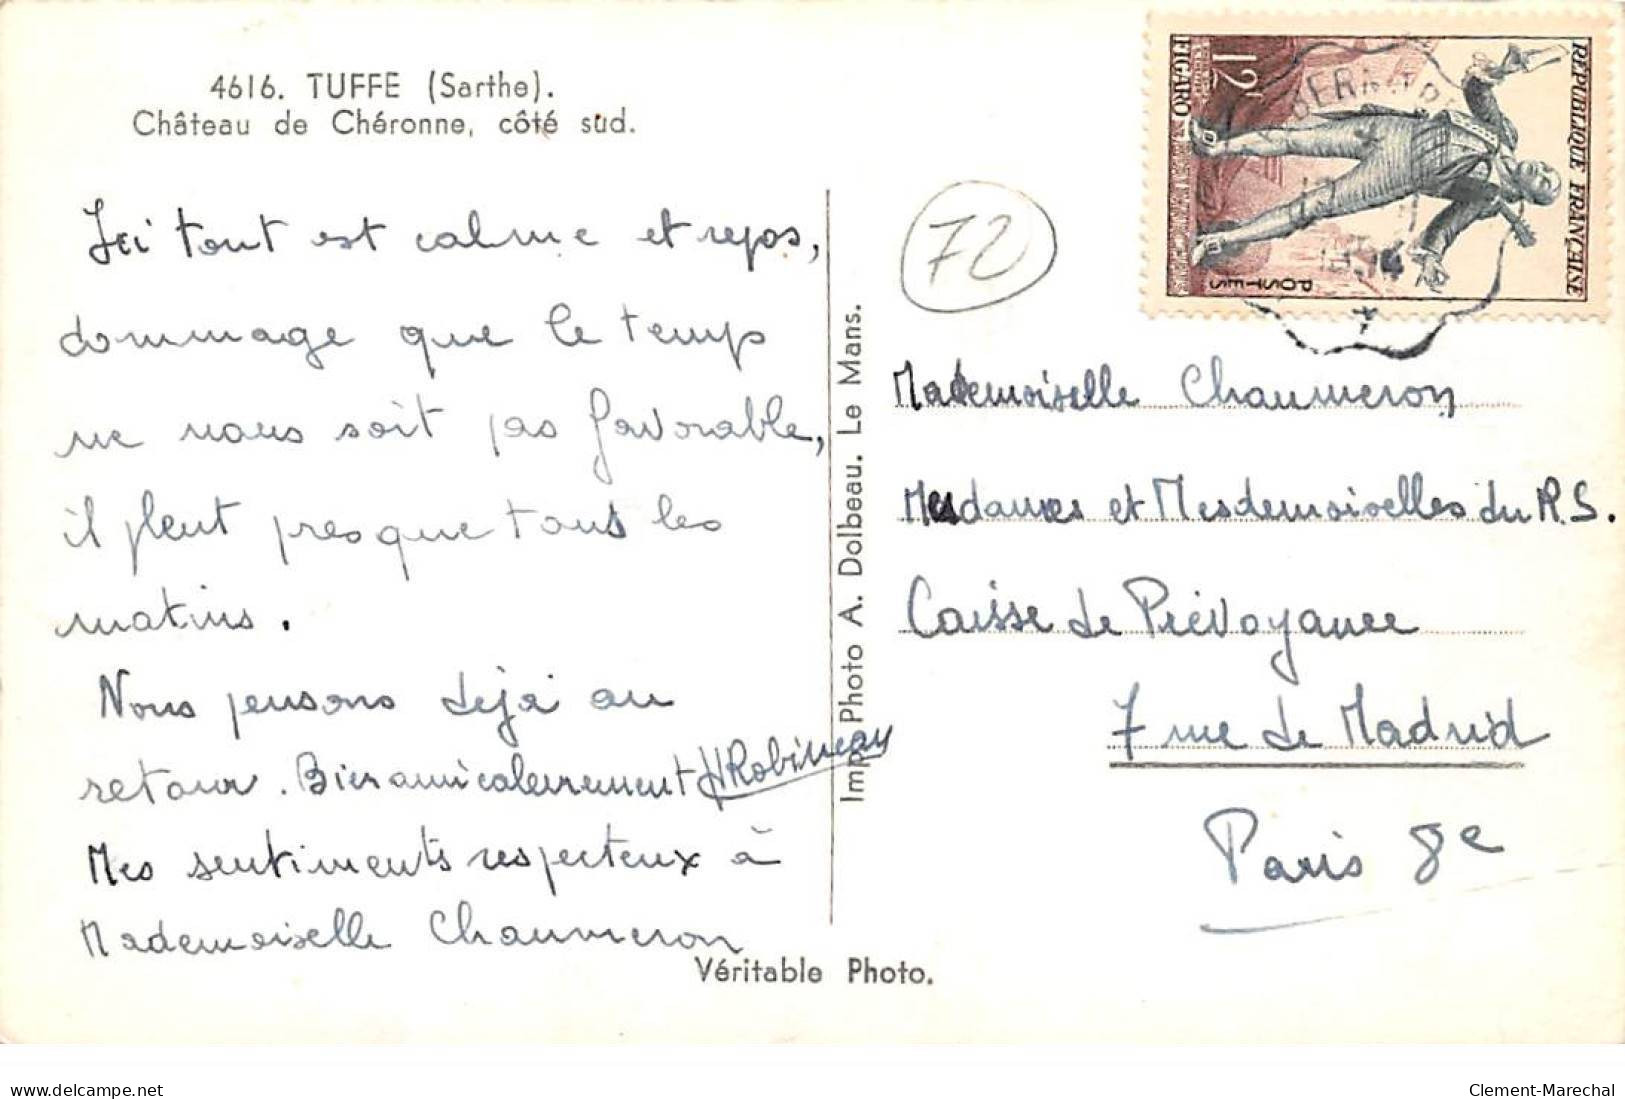 4616. TUFFE (Sarthe).
Château de Chéronne, côté sud.
Ici tout est calme et repos,
dommage que le temps
ne nous soit pas favorable,
il pleut presque tous les
matins.
Nous pensons déjà au
retour. Bien amicalement HRobineau
Mes sentiments respecteux à
Mademoiselle Chaumeron
Imp. Photo A. Dolbeau. Le Mans.
Véritable Photo.
72
RÉPUBLIQUE FRANÇAISE
12F
FIGARO
POSTES
Mademoiselle Chaumeron
Mesdames et Mesdemoiselles du R.S.
Caisse de Prévoyance
7 rue de Madrid
Paris 8e
delcampe.net
Clement-Marechal